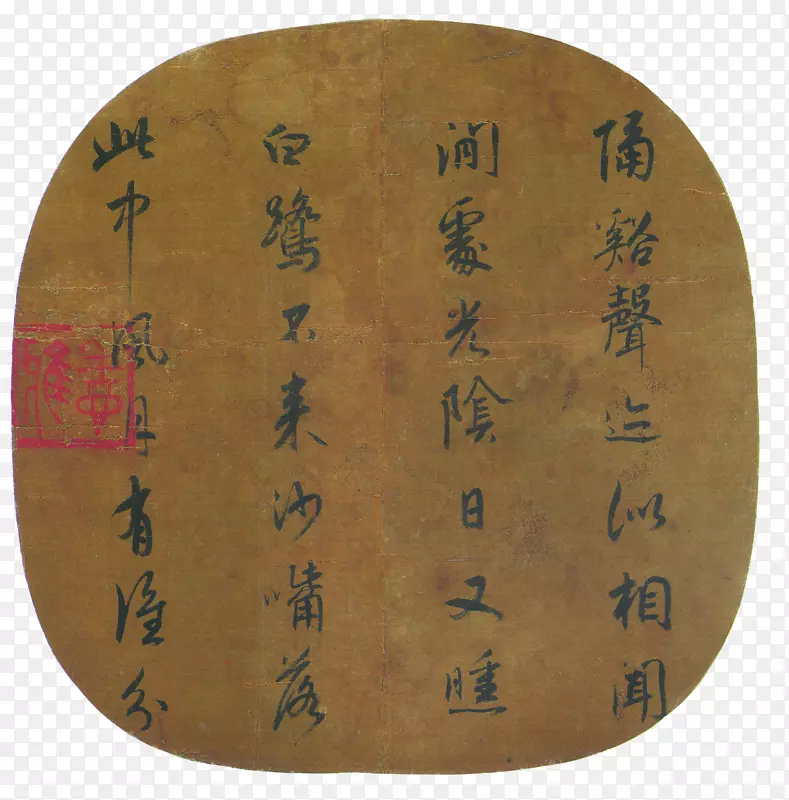 隔谿聲迹似相聞
澗處光陰日又曛
白鷺不来沙嘴落
此中風月有誰分